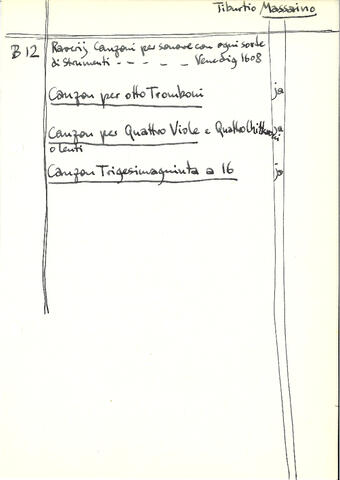 Tiburtio Massaino
B 12 Raverij Canzoni per sonare con ogni sorte
di strumenti - - - - - Venedig 1608
Canzon per otto Tromboni ja
Canzon per Quattro Viole e Quattro Chittaroni ja
o leuti
Canzon Trigesimaquinta a 16 ja